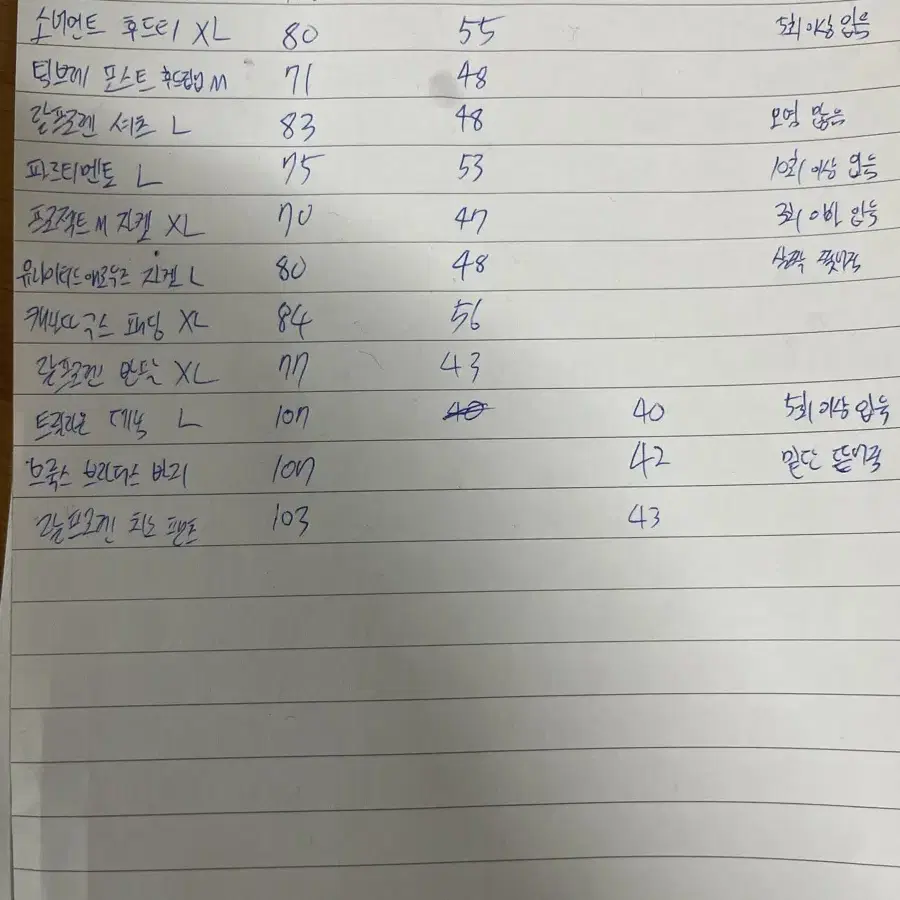 소버먼트 후드티 XL 80 55 5회 이상 입음
틸브레 포스트 후드집업 M 71 48
랄프로렌 셔츠 L 83 48 오염 많음
파르티멘토 L 75 53 10회 이상 입음
프로젝트 M 자켓 XL 70 47 3회 이하 입음
유나이티드 애로우즈 자켓 L 80 48 살짝
캐나다 구스 패딩 XL 84 56
랄프로렌 XL 77 43
트릴리온 데님 L 107 40 40 5회 이상 입음
브룩스 브라더스 바지 107 42 밑단 뜯어짐
랄프로렌 치노 팬츠 103 43